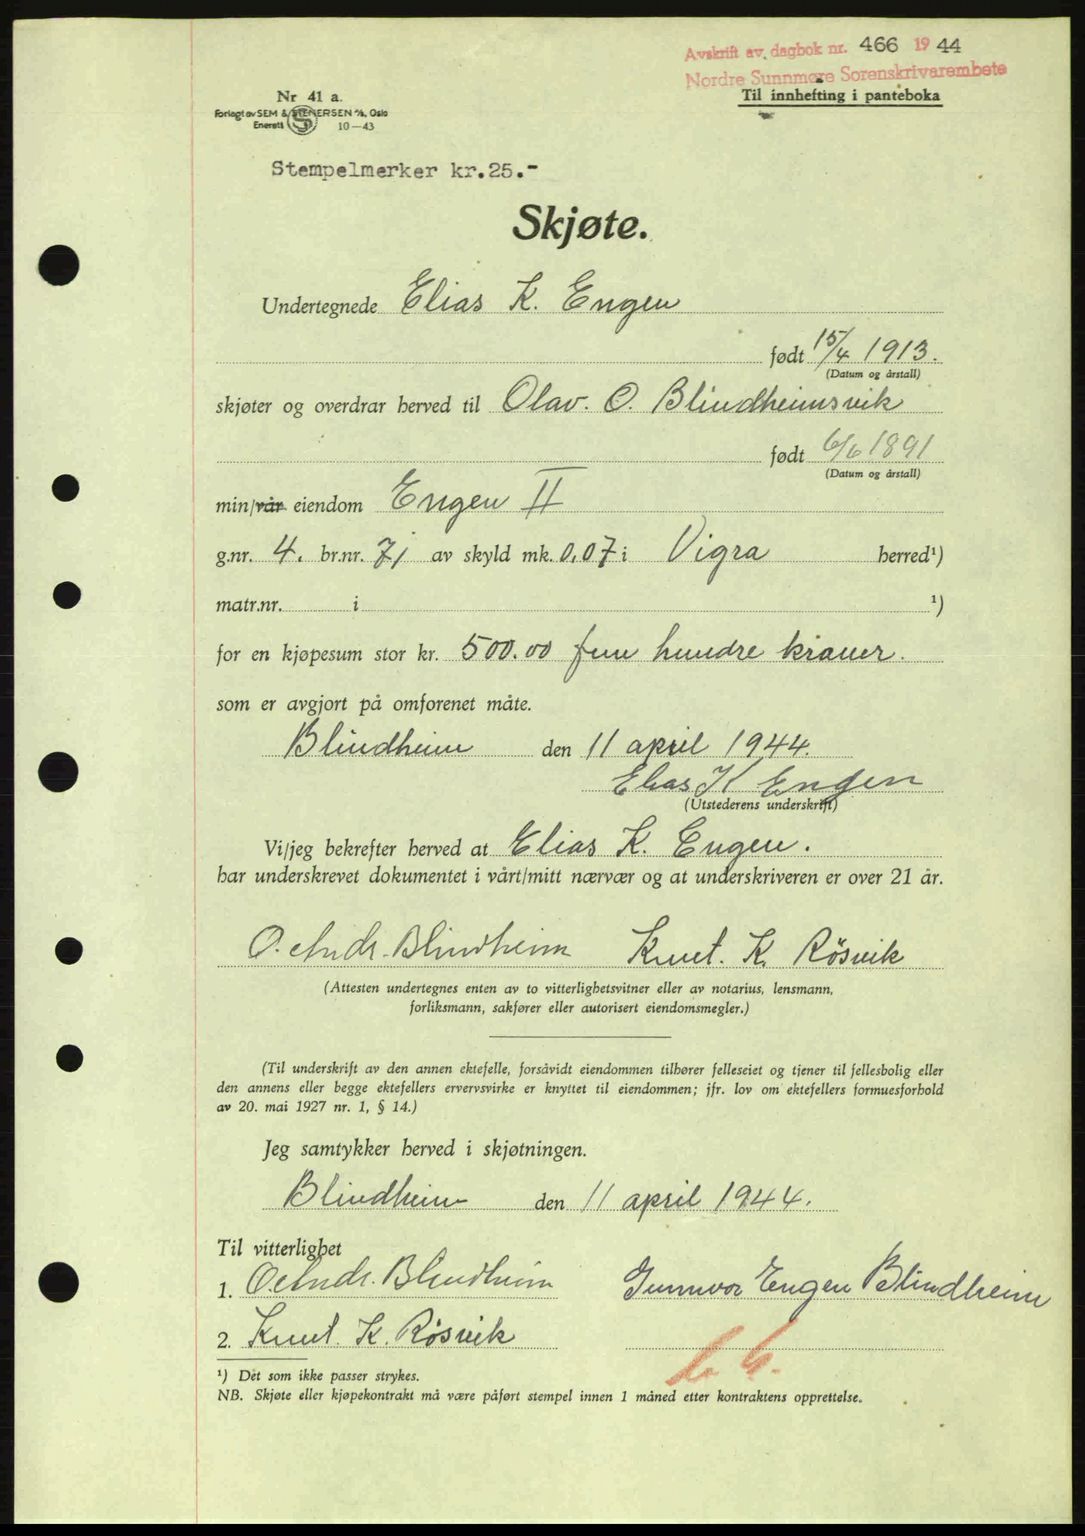 Avskrift av dagbok nr. 466 1944
Nordre Sunnmøre Sorenskrivarembete
Til innhefting i panteboka
Nr 41 a.
Forlagt av SEM & STENERSEN A/S, Oslo
Enerett S 10—43
Stempelmerker kr.25.-
Skjøte.
Undertegnede Elias K. Engen
født 15/4 1913.
(Datum og årstall)
skjøter og overdrar herved til Olav. O. Blindheimsvik
født 6/6 1891
(Datum og årstall)
min/vår eiendom Engen II
g.nr. 4. br.nr. 71 av skyld mk. 0,07 i Vigra herred¹)
matr.nr. i ¹)
for en kjøpesum stor kr. 500.00 fem hundre kroner.
som er avgjort på omforenet måte.
Blindheim den 11 april 1944.
Elias K Engen
(Utstederens underskrift)
Vi/jeg bekrefter herved at Elias K. Engen.
har underskrevet dokumentet i vårt/mitt nærvær og at underskriveren er over 21 år.
O. Andr. Blindheim Knut. K. Røsvik
(Attesten undertegnes enten av to vitterlighetsvitner eller av notarius, lensmann,
forliksmann, sakfører eller autorisert eiendomsmegler.)
(Til underskrift av den annen ektefelle, forsåvidt eiendommen tilhører felleseiet og tjener til fellesbolig eller
den annens eller begge ektefellers ervervsvirke er knyttet til eiendommen; jfr. lov om ektefellers formuesforhold
av 20. mai 1927 nr. 1, § 14.)
Jeg samtykker herved i skjøtningen.
Blindheim den 11 april 1944.
Til vitterlighet
1. O. Andr. Blindheim Gunnvor Engen Blindheim
2. Knut. K. Røsvik
¹) Det som ikke passer strykes.
NB. Skjøte eller kjøpekontrakt må være påført stempel innen 1 måned etter kontraktens opprettelse.